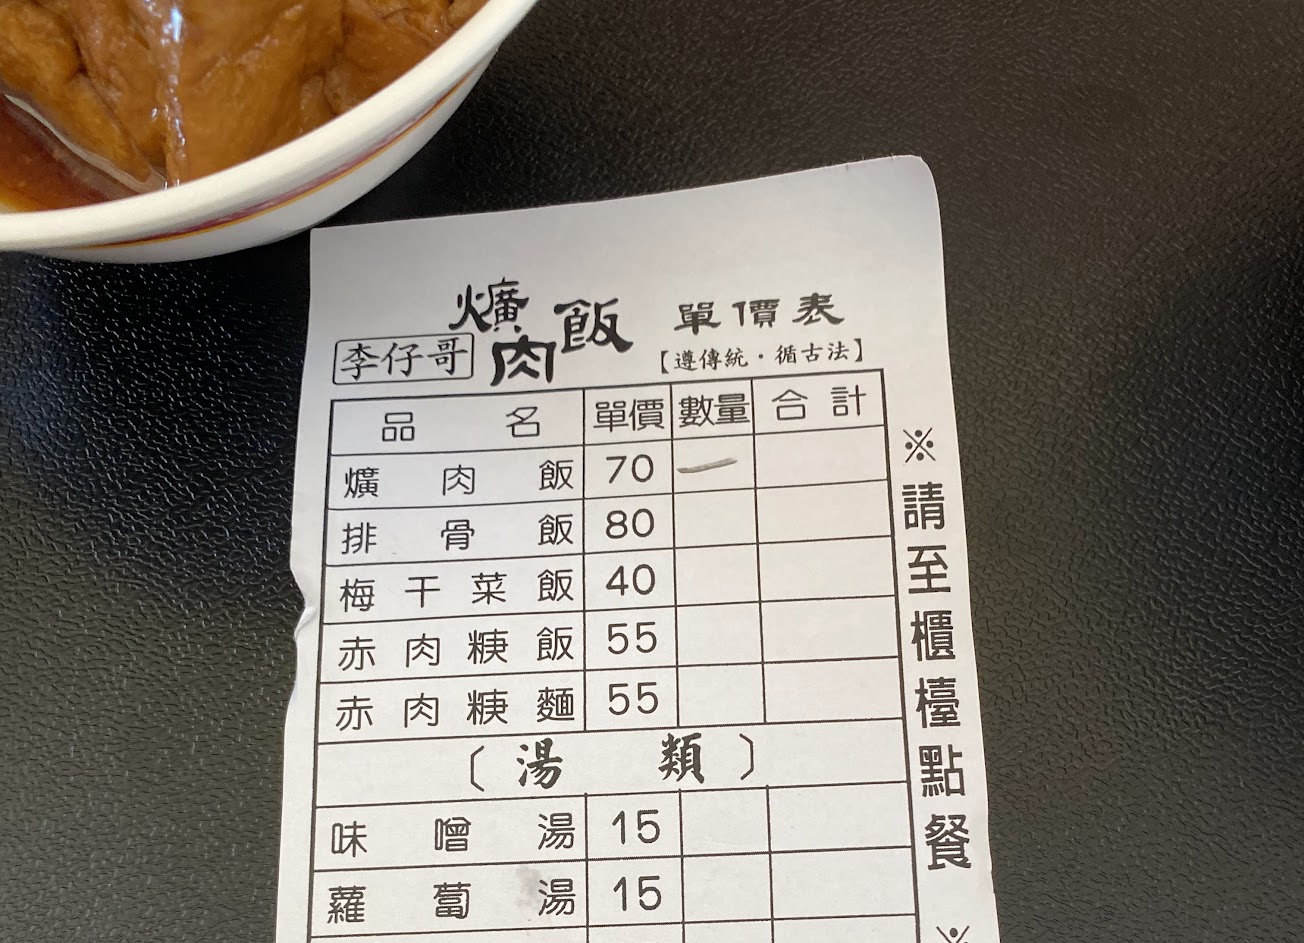 爌肉飯 單價表
李仔哥
【遵傳統·循古法】
品名 單價 數量 合計
爌肉飯 70 一
排骨飯 80
梅干菜飯 40
赤肉焿飯 55
赤肉焿麵 55
〔湯類〕
味噌湯 15
蘿蔔湯 15
※請至櫃檯點餐※